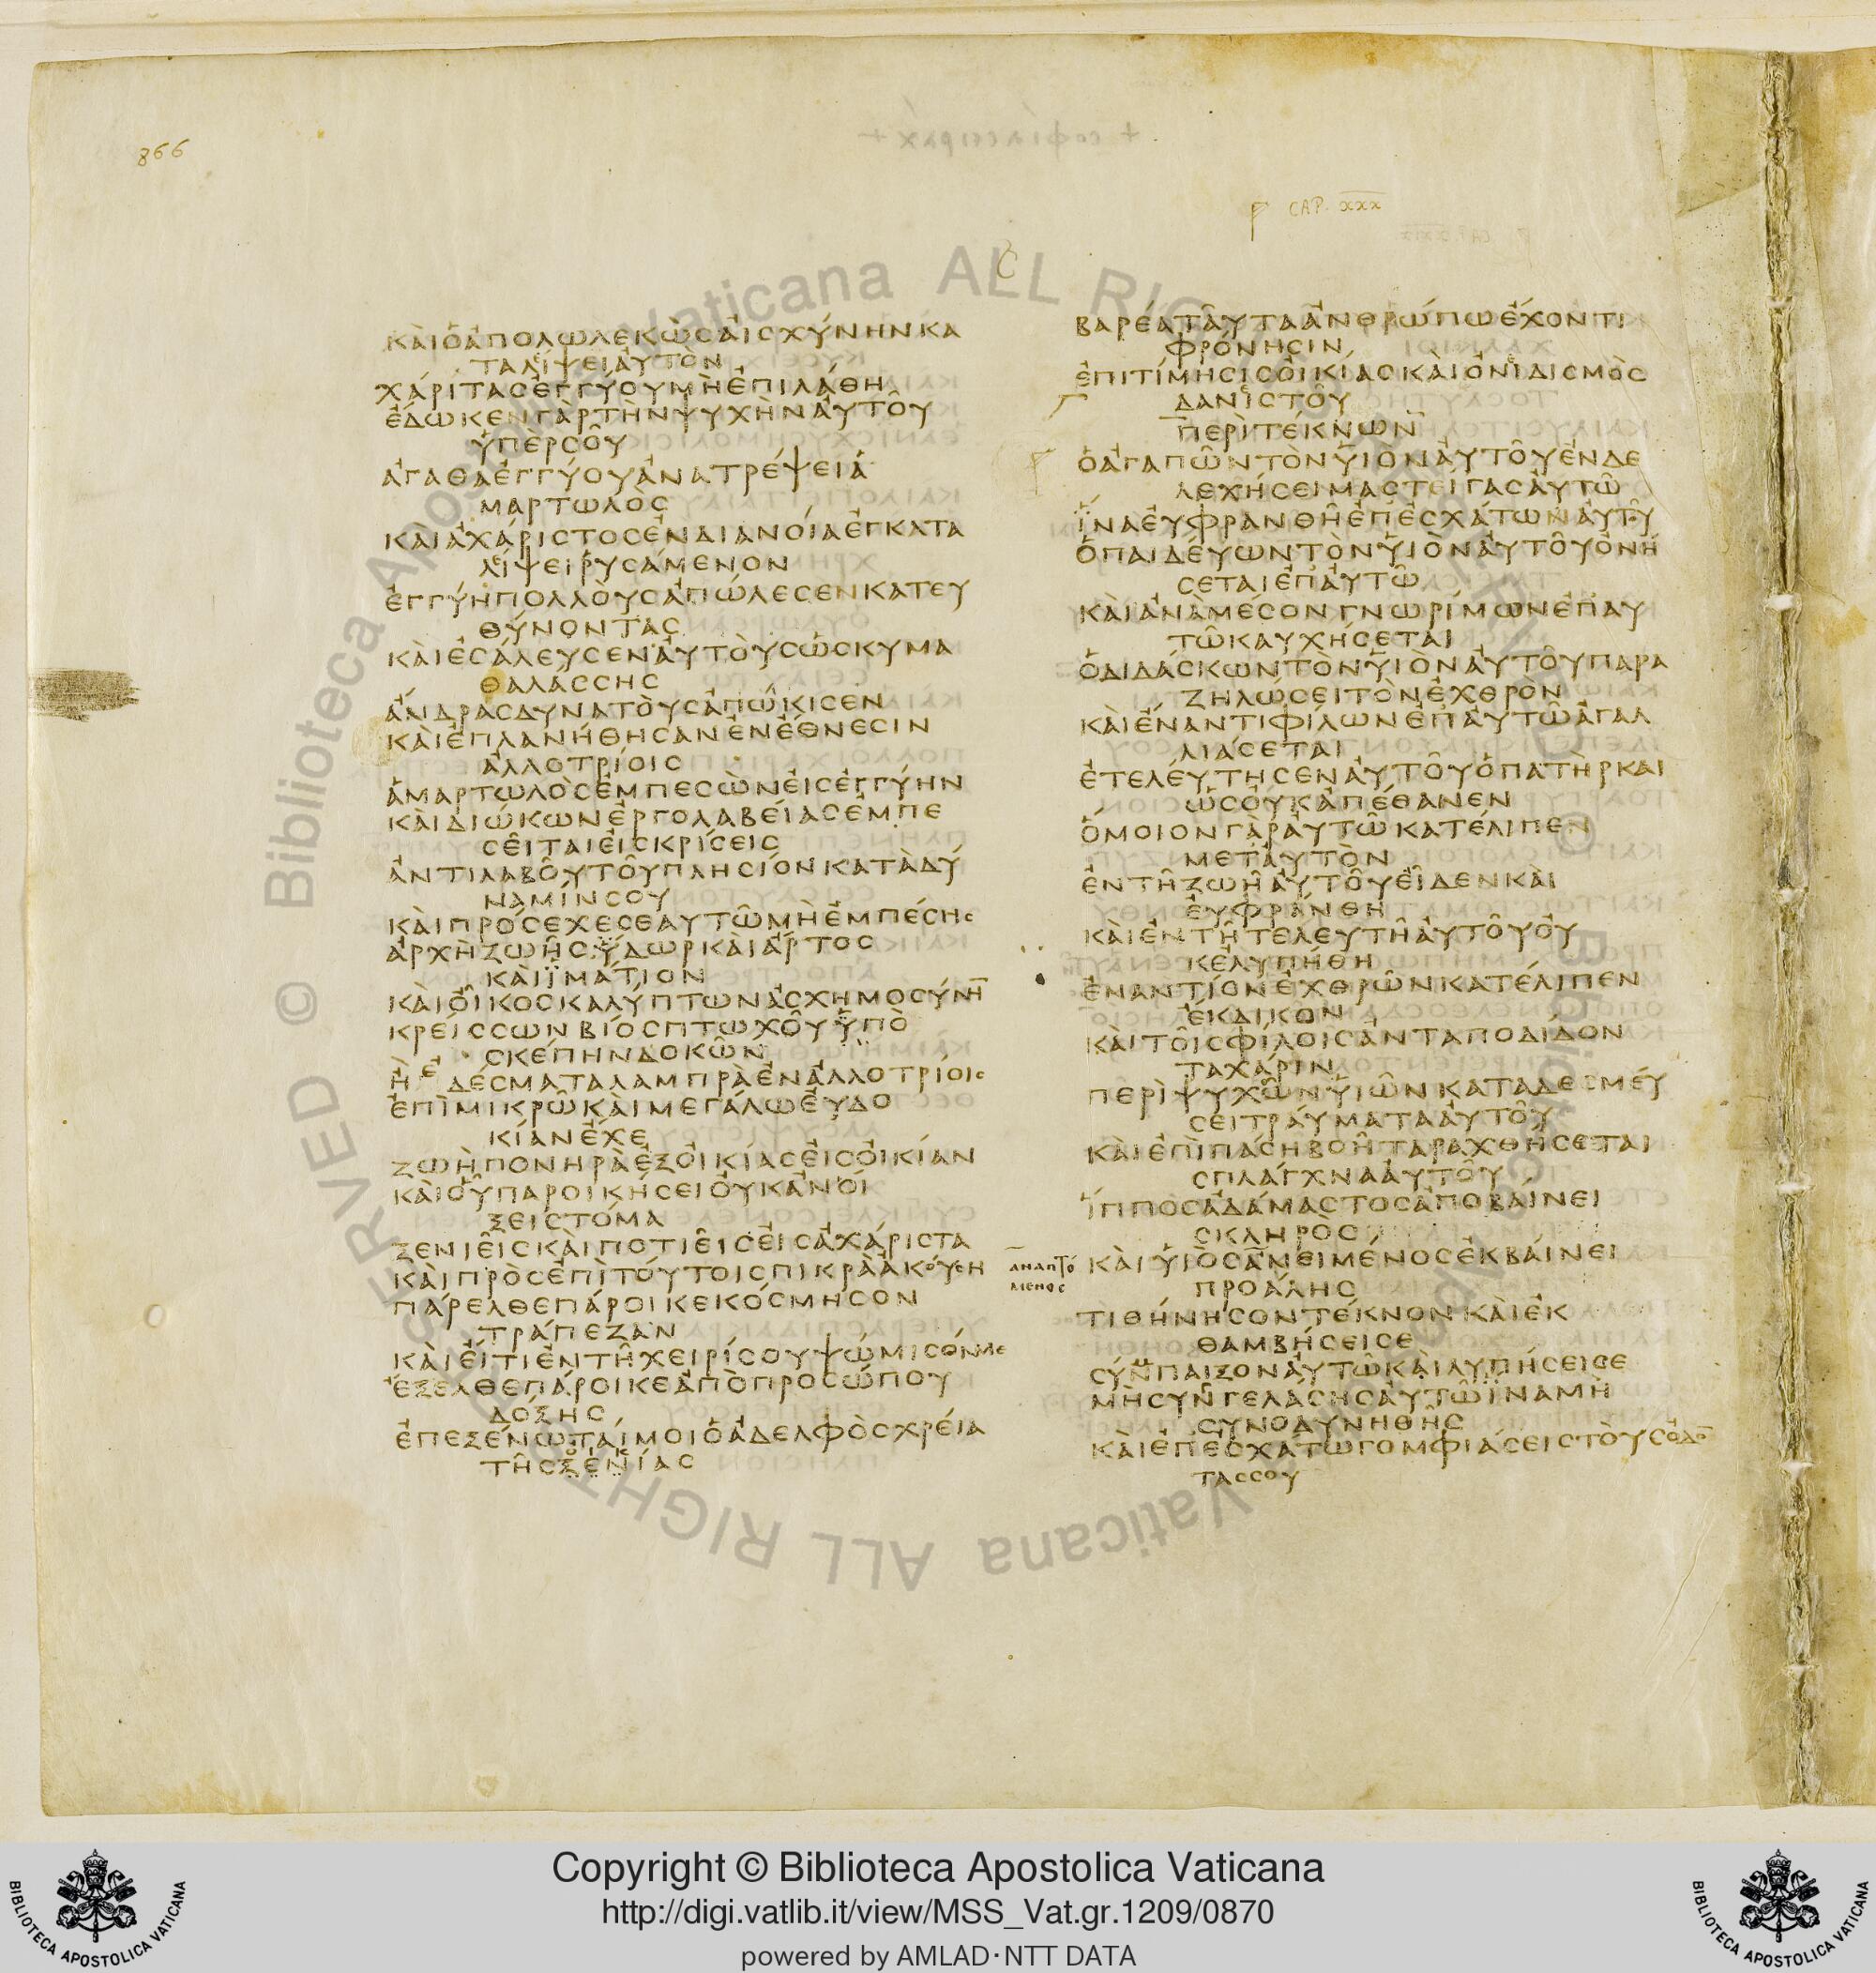 866
CAP. XXX
ΚΑΙΟΑΠΟΛΩΛΕΚΩϹΑΙϹΧΥΝΗΝΚΑ
ΤΑΛΙΨΕΙΑΥΤΟΝ
ΧΑΡΙΤΑϹΕΓΓΥΟΥΜΗΕΠΙΛΑΘΗ
ΕΔΩΚΕΝΓΑΡΤΗΝΨΥΧΗΝΑΥΤΟΥ
ΥΠΕΡϹΟΥ
ΑΓΑΘΑΕΓΓΥΟΥΑΝΑΤΡΕΨΕΙΑ
ΜΑΡΤΩΛΟϹ
ΚΑΙΑΧΑΡΙϹΤΟϹΕΝΔΙΑΝΟΙΑΕΓΚΑΤΑ
ΛΙΨΕΙΡΥϹΑΜΕΝΟΝ
ΕΓΓΥΗΠΟΛΛΟΥϹΑΠΩΛΕϹΕΝΚΑΤΕΥ
ΘΥΝΟΝΤΑϹ
ΚΑΙΕϹΑΛΕΥϹΕΝΑΥΤΟΥϹΩϹΚΥΜΑ
ΘΑΛΑϹϹΗϹ
ΑΝΔΡΑϹΔΥΝΑΤΟΥϹΑΠΩΚΙϹΕΝ
ΚΑΙΕΠΛΑΝΗΘΗϹΑΝΕΝΕΘΝΕϹΙΝ
ΑΛΛΟΤΡΙΟΙϹ
ΑΜΑΡΤΩΛΟϹΕΜΠΕϹΩΝΕΙϹΕΓΓΥΗΝ
ΚΑΙΔΙΩΚΩΝΕΡΓΟΛΑΒΕΙΑϹΕΜΠΕ
ϹΕΙΤΑΙΕΙϹΚΡΙϹΕΙϹ
ΑΝΤΙΛΑΒΟΥΤΟΥΠΛΗϹΙΟΝΚΑΤΑΔΥ
ΝΑΜΙΝϹΟΥ
ΚΑΙΠΡΟϹΕΧΕϹΕΑΥΤΩΜΗΕΜΠΕϹΗϹ
ΑΡΧΗΖΩΗϹΥΔΩΡΚΑΙΑΡΤΟϹ
ΚΑΙΪΜΑΤΙΟΝ
ΚΑΙΟΙΚΟϹΚΑΛΥΠΤΩΝΑϹΧΗΜΟϹΥΝΗ̅
ΚΡΕΙϹϹΩΝΒΙΟϹΠΤΩΧΟΥΫΠΟ
ϹΚΕΠΗΝΔΟΚΩΝ
ΗΕΔΕϹΜΑΤΑΛΑΜΠΡΑΕΝΑΛΛΟΤΡΙΟΙϹ
ΕΠΙΜΙΚΡΩΚΑΙΜΕΓΑΛΩΕΥΔΟ
ΚΙΑΝΕΧΕ
ΖΩΗΠΟΝΗΡΑΕΞΟΙΚΙΑϹΕΙϹΟΙΚΙΑΝ
ΚΑΙΟΥΠΑΡΟΙΚΗϹΕΙΟΥΚΑΝΟΙ
ΞΕΙϹΤΟΜΑ
ΞΕΝΙΕΙϹΚΑΙΠΟΤΙΕΙϹΕΙϹΑΧΑΡΙϹΤΑ
ΚΑΙΠΡΟϹΕΠΙΤΟΥΤΟΙϹΠΙΚΡΑΑΚΟΥϹΗ
ΠΑΡΕΛΘΕΠΑΡΟΙΚΕΚΟϹΜΗϹΟΝ
ΤΡΑΠΕΖΑΝ
ΚΑΙΕΙΤΙΕΝΤΗΧΕΙΡΙϹΟΥΨΩΜΙϹΟΝΜΕ
ΕΞΕΛΘΕΠΑΡΟΙΚΕΑΠΟΠΡΟϹΩΠΟΥ
ΔΟΞΗϹ
ΕΠΕΞΕΝΩΤΑΙΜΟΙΟΑΔΕΛΦΟϹΧΡΕΙΑ
ΤΗϹΞΕΝΙΑϹ
ΒΑΡΕΑΤΑΥΤΑΑΝΘΡΩΠΩΕΧΟΝΤΙ
ΦΡΟΝΗϹΙΝ
ΕΠΙΤΙΜΗϹΙϹΟΙΚΙΑϹΚΑΙΟΝΙΔΙϹΜΟϹ
ΔΑΝΙϹΤΟΥ
ΠΕΡΙΤΕΚΝΩΝ
ΟΑΓΑΠΩΝΤΟΝΥΙΟΝΑΥΤΟΥΕΝΔΕ
ΛΕΧΗϹΕΙΜΑϹΤΕΙΓΑϹΑΥΤΩ
ΪΝΑΕΥΦΡΑΝΘΗΕΠΕϹΧΑΤΩΝΑΥΤΟΥ
ΟΠΑΙΔΕΥΩΝΤΟΝΥΙΟΝΑΥΤΟΥΟΝΗ
ϹΕΤΑΙΕΠΑΥΤΩ
ΚΑΙΑΝΑΜΕϹΟΝΓΝΩΡΙΜΩΝΕΠΑΥ
ΤΩΚΑΥΧΗϹΕΤΑΙ
ΟΔΙΔΑϹΚΩΝΤΟΝΥΙΟΝΑΥΤΟΥΠΑΡΑ
ΖΗΛΩϹΕΙΤΟΝΕΧΘΡΟΝ
ΚΑΙΕΝΑΝΤΙΦΙΛΩΝΕΠΑΥΤΩΑΓΑΛ
ΛΙΑϹΕΤΑΙ
ΕΤΕΛΕΥΤΗϹΕΝΑΥΤΟΥΟΠΑΤΗΡΚΑΙ
ΩϹΟΥΚΑΠΕΘΑΝΕΝ
ΟΜΟΙΟΝΓΑΡΑΥΤΩΚΑΤΕΛΙΠΕΝ
ΜΕΤΑΥΤΟΝ
ΕΝΤΗΖΩΗΑΥΤΟΥΕΙΔΕΝΚΑΙ
ΕΥΦΡΑΝΘΗ
ΚΑΙΕΝΤΗΤΕΛΕΥΤΗΑΥΤΟΥΟΥ
ΚΕΛΥΠΗΘΗ
ΕΝΑΝΤΙΟΝΕΧΘΡΩΝΚΑΤΕΛΙΠΕΝ
ΕΚΔΙΚΟΝ
ΚΑΙΤΟΙϹΦΙΛΟΙϹΑΝΤΑΠΟΔΙΔΟΝ
ΤΑΧΑΡΙΝ
ΠΕΡΙΨΥΧΩΝΥΙΩΝΚΑΤΑΔΕϹΜΕΥ
ϹΕΙΤΡΑΥΜΑΤΑΑΥΤΟΥ
ΚΑΙΕΠΙΠΑϹΗΒΟΗΤΑΡΑΧΘΗϹΕΤΑΙ
ϹΠΛΑΓΧΝΑΑΥΤΟΥ
ΙΠΠΟϹΑΔΑΜΑϹΤΟϹΑΠΟΒΑΙΝΕΙ
ϹΚΛΗΡΟϹ
ΚΑΙΥΙΟϹΑΝΕΙΜΕΝΟϹΕΚΒΑΙΝΕΙ
ΠΡΟΑΛΗϹ
ΤΙΘΗΝΗϹΟΝΤΕΚΝΟΝΚΑΙΕΚ
ΘΑΜΒΗϹΕΙϹΕ
ϹΥΝΠΑΙΞΟΝΑΥΤΩΚΑΙΛΥΠΗϹΕΙϹΕ
ΜΗϹΥΝΓΕΛΑϹΗϹΑΥΤΩΪΝΑΜΗ
ϹΥΝΟΔΥΝΗΘΗϹ
ΚΑΙΕΠΕϹΧΑΤΩΓΟΜΦΙΑϹΕΙϹΤΟΥϹΟΔΟ̅
ΤΑϹϹΟΥ
Copyright © Biblioteca Apostolica Vaticana
http://digi.vatlib.it/view/MSS_Vat.gr.1209/0870
powered by AMLAD·NTT DATA
BIBLIOTECA APOSTOLICA VATICANA
BIBLIOTECA APOSTOLICA VATICANA